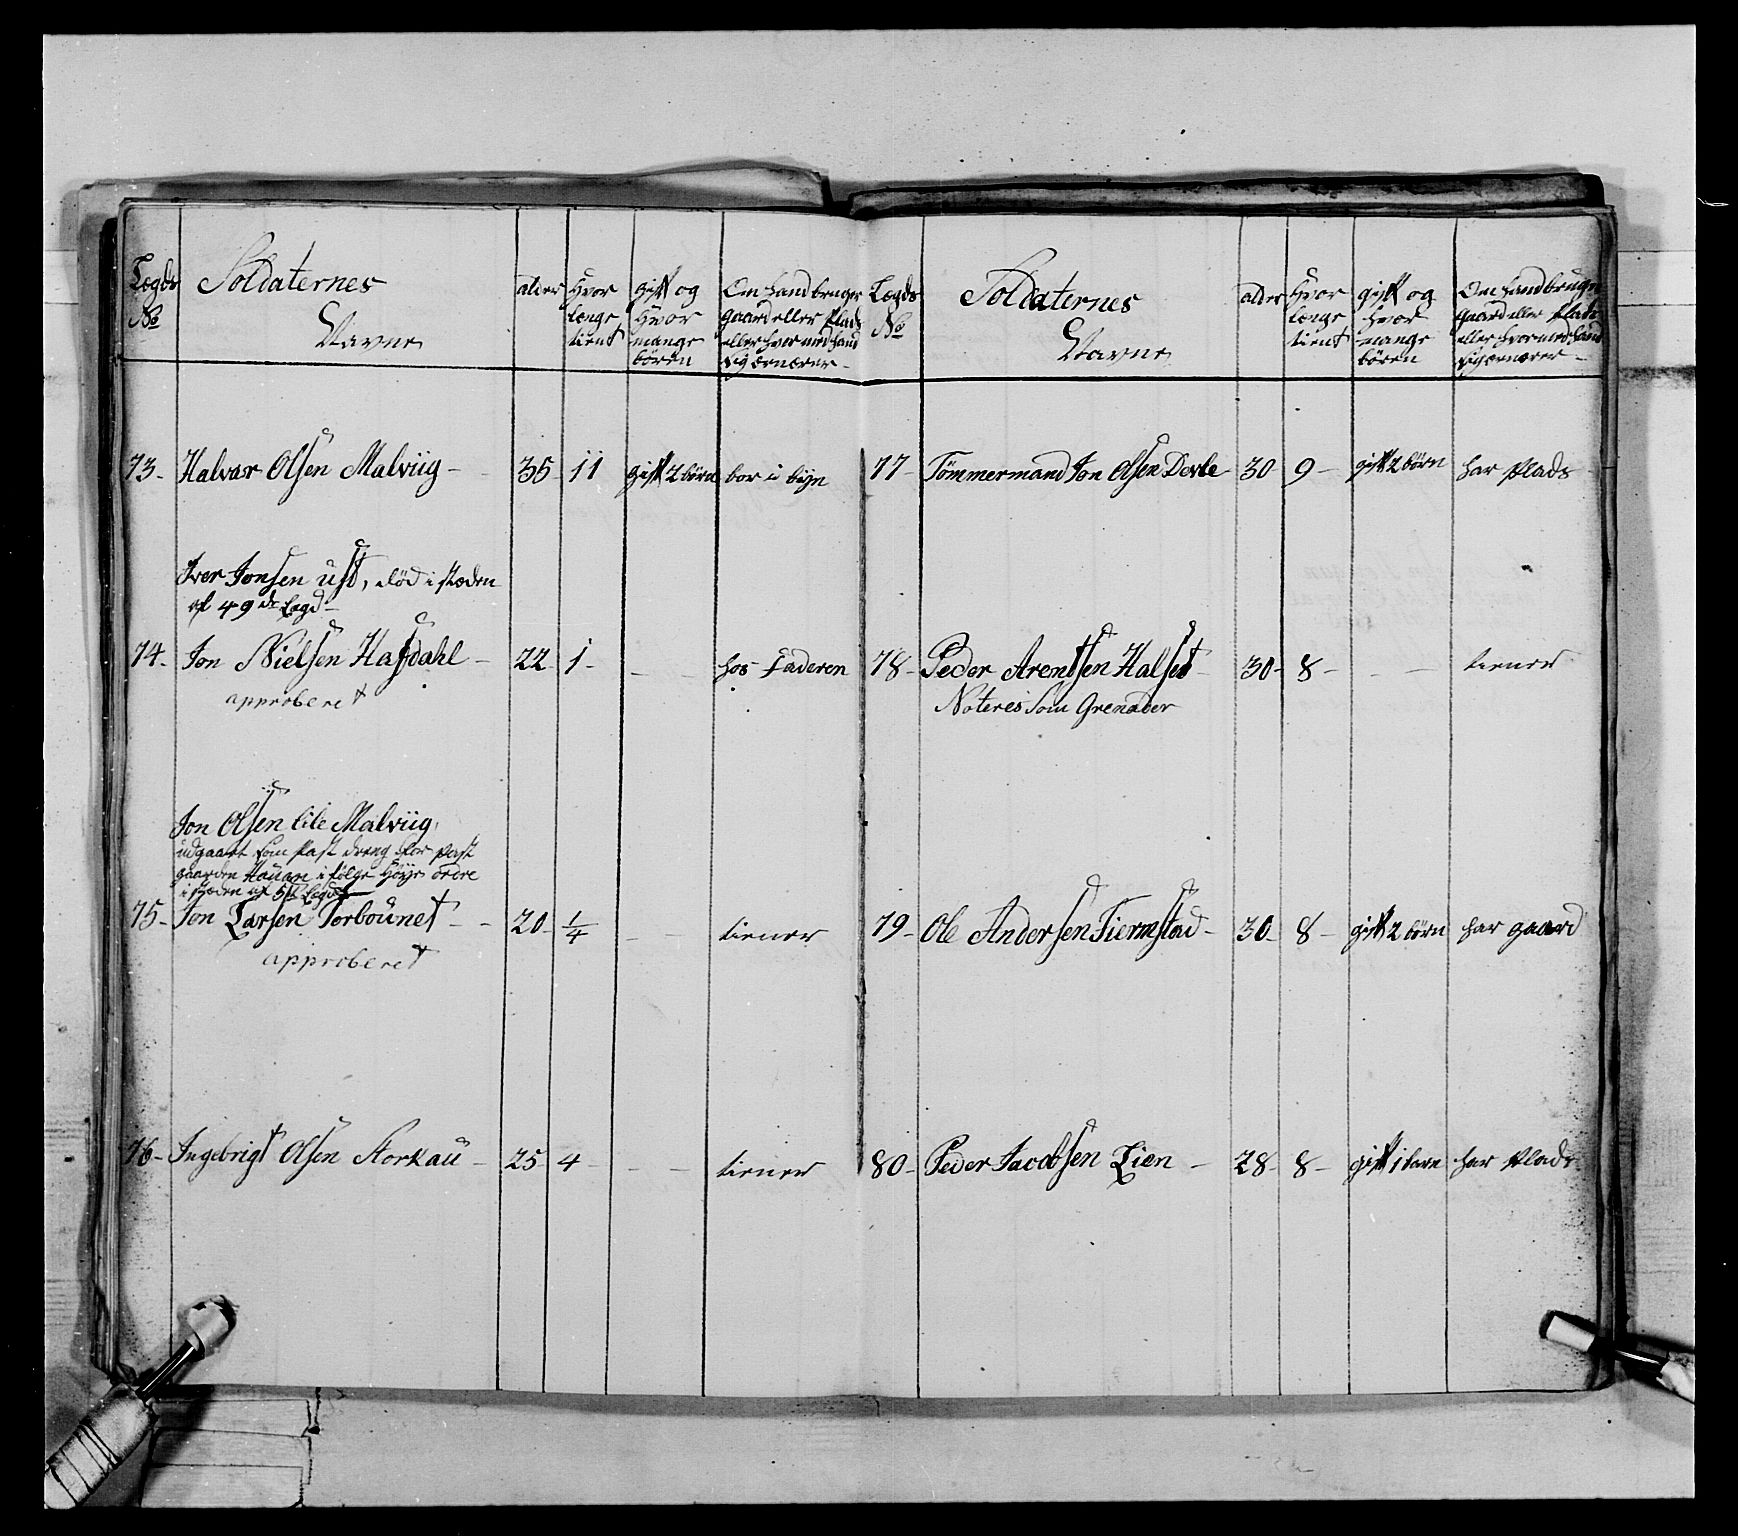 Lægds No
Soldaternes Navne
alder
Hvor længe tient
gift og Hvor mange bören
Om hand bruger gaard eller Plads eller hvor med hand sig ærnærer -
73 - Halvar Olsen Malviig - 35 - 11 gift 2 börn bor i biyn
Iver Jonsen Ust, död i stæden
af 49de Legd -
74 - Jon Nielsen Hafdahl - 22 - 1 - - - hos Faderen
approberet
Jon Olsen lile Malviig,
udgaaet som Post dreng for Post
gaarden Hauan i fölge Höye ordre
i stæden af 51te Legd
75 - Jon Larsen Torbounet - - 20 - 1/4 - - tiener
approberet
76 - Ingebrigt Olsen Storkau - 25 4 - - - tiener
Lægds No
Soldaternes Navne
alder
Hvor længe tient
gift og hvor mange bören
Om hand bruger gaard eller Plads eller hvor med hand sig ærnærer -
77 - Tömmermand Jon Olsen Devle 30 9 - gift 2 börn har Plads
78 - Peder Arentsen Halset - 30 - 8 - - - tiener
Noteres som Grenader
79 - Ole Andersen Tiermstad - 30 - 8 - gift 2 börn har gaard
80 - Peder Jacobsen Lien - 28 - 8 - gift 1 barn har Plads